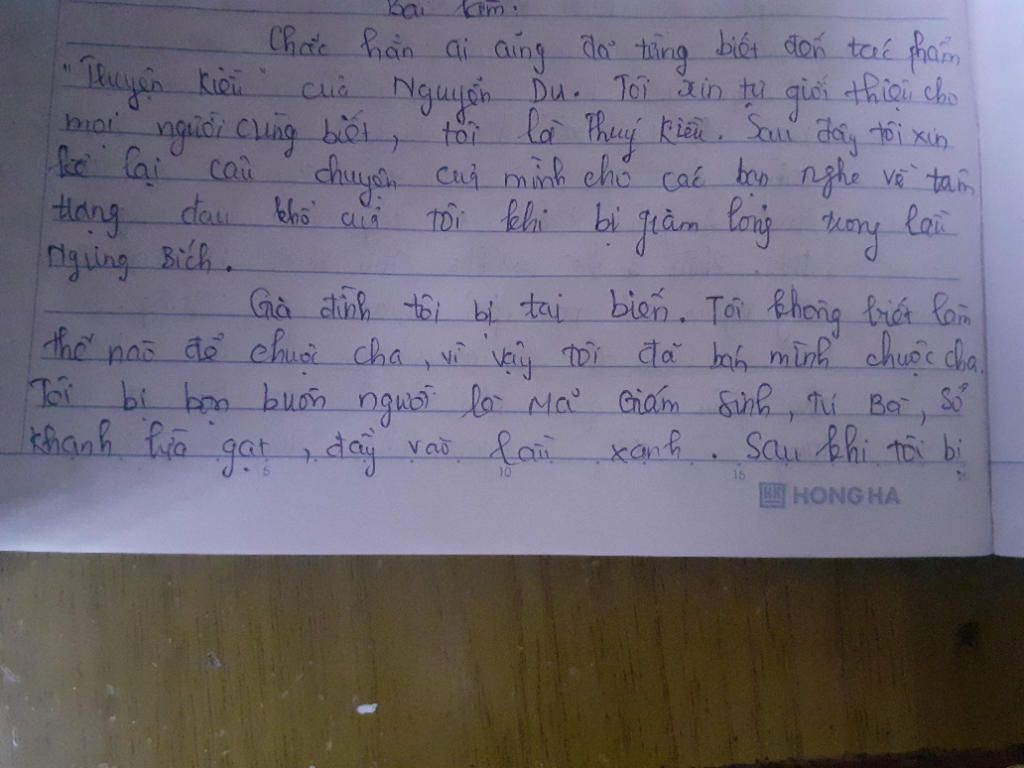 Bài làm:
Chắc hẳn ai cũng đã từng biết đến tác phẩm
"Truyện Kiều" của Nguyễn Du. Tôi xin tự giới thiệu cho
mọi người cùng biết, tôi là Thuý Kiều. Sau đây tôi xin
kể lại câu chuyện của mình cho các bạn nghe về tâm
trạng đau khổ của tôi khi bị giam lỏng trong lầu
Ngưng Bích.
Gia đình tôi bị tai biến. Tôi không biết làm
thế nào để chuộc cha, vì vậy tôi đã bán mình chuộc cha.
Tôi bị bọn buôn người là Mã Giám Sinh, Tú Bà, Sở
Khanh lừa gạt, đẩy vào lầu xanh. Sau khi tôi bị
5 10 15
HONG HA